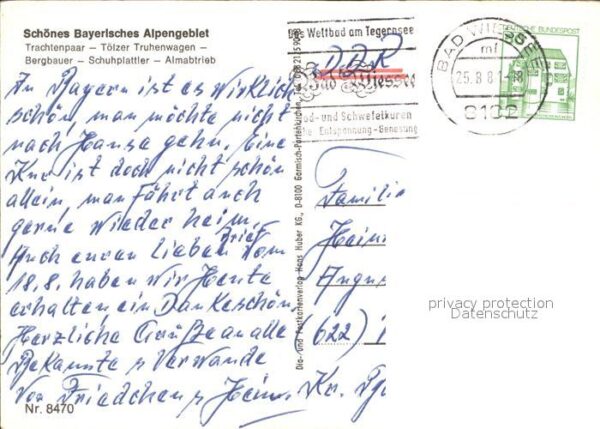 Schönes Bayerisches Alpengebiet
Trachtenpaar — Tölzer Truhenwagen —
Bergbauer — Schuhplattler — Almabtrieb
In Bayern ist es wirklich
schön, man möchte nicht
nach Hause gehn. Eine
Kur ist doch nicht schön
allein, man fährt auch
gerne wieder heim.
Auch euren lieben Brief vom
18.8. haben wir Heute
erhalten ein Dankeschön.
Herzliche Grüße an alle
Bekannte u Verwande
Von Friedchen u Heinr.
Nr. 8470
Dia- und Postkartenverlag Hans Huber KG., D-8100 Garmisch-Partenkirchen, Tel.
Das Weltbad am Tegernsee
DDR
Bad Wiessee
Jod- und Schwefelkuren
Entspannung-Genesung
BAD WIESSEE
mf
25.8.8
8182
DEUTSCHE BUNDESPOST
Familie
Hein
(622)
Kr.
privacy protection
Datenschutz